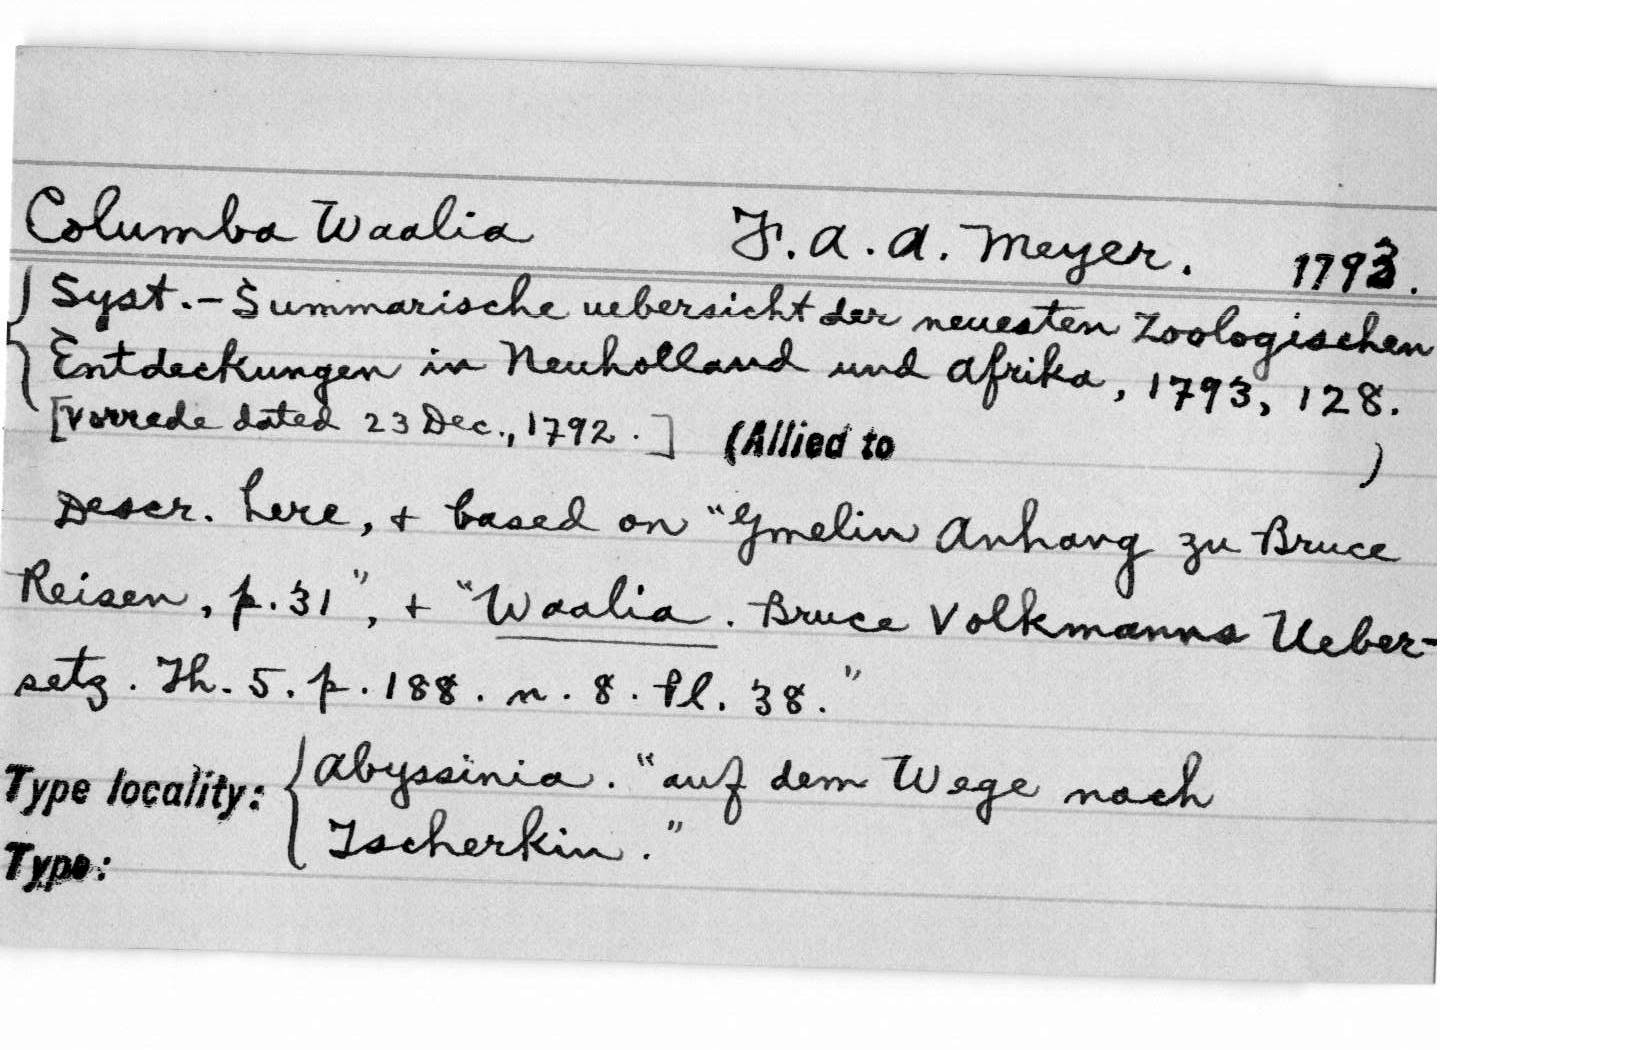 Columba Waalia F. A. A. Meyer. 1793.
Syst.-Summarische uebersicht der neuesten Zoologischen
Entdeckungen in Neuholland und Afrika, 1793, 128.
[Vorrede dated 23 Dec., 1792.] (Allied to )
Descr. here, + based on "Gmelin Anhang zu Bruce
Reisen, p. 31", + "Waalia. Bruce Volkmanns Ueber-
setz. Th. 5. p. 188. n. 8. Pl. 38."
Type locality: Abyssinia. "auf dem Wege nach
Tscherkin."
Type: